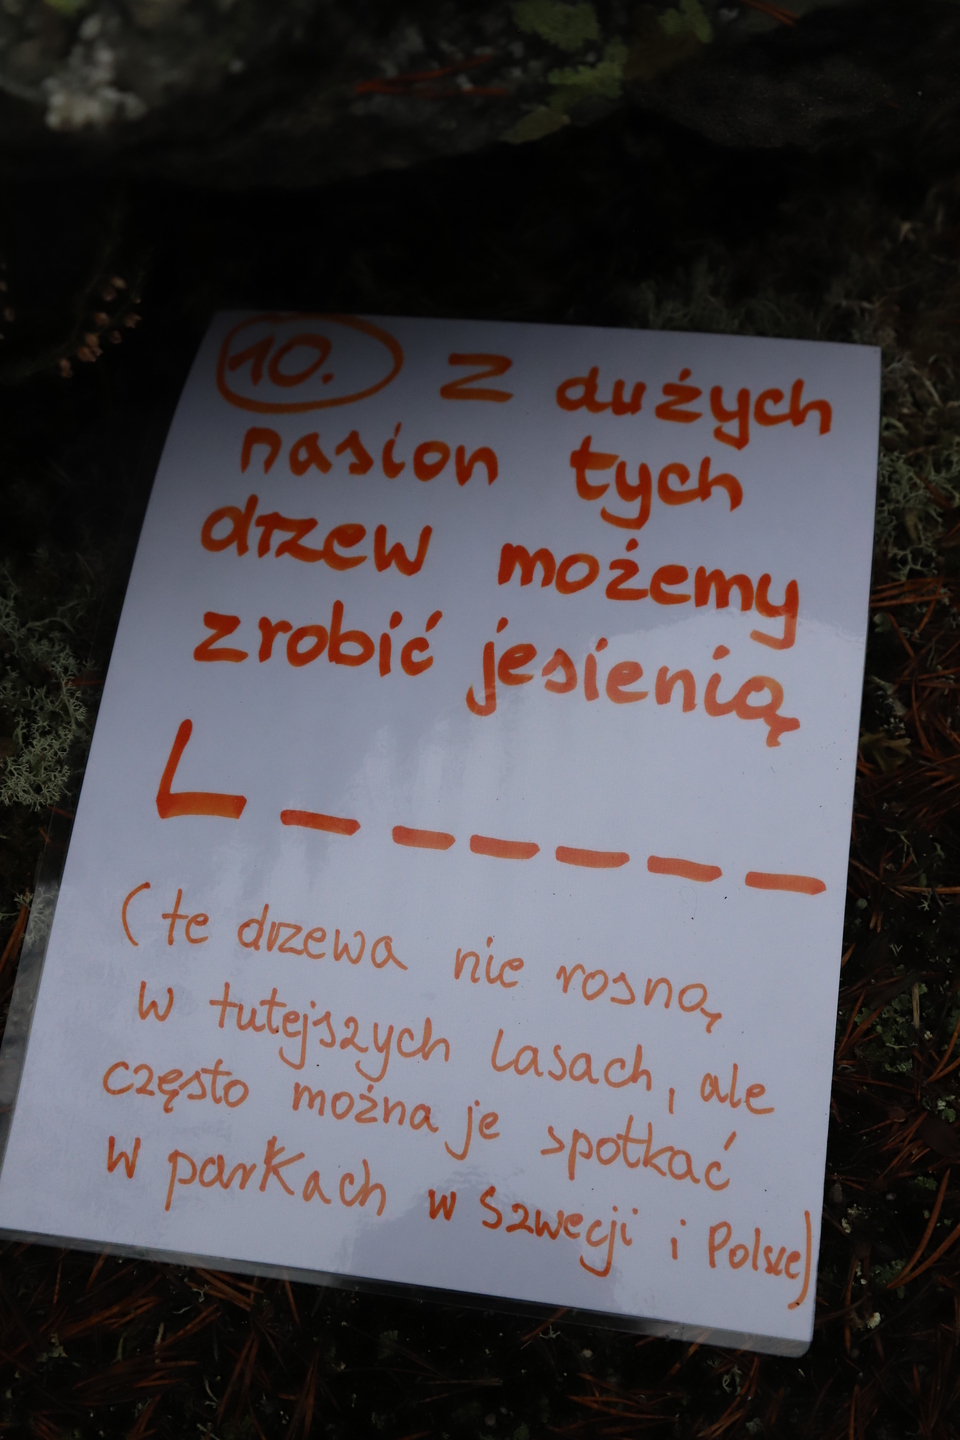 10. Z dużych
nasion tych
drzew możemy
zrobić jesienią
L _ _ _ _ _ _
(te drzewa nie rosną
w tutejszych lasach, ale
często można je spotkać
w parkach w Szwecji i Polsce)